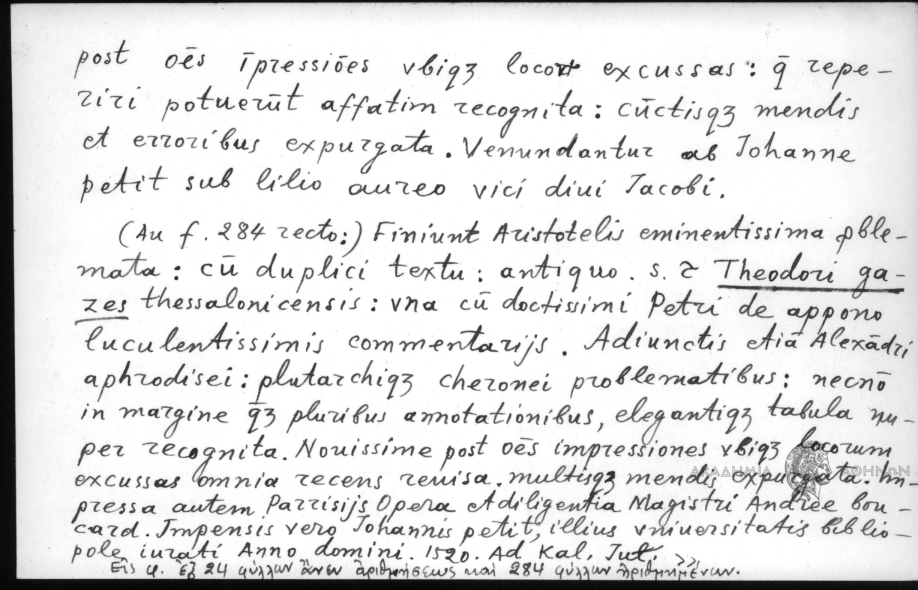 post oēs īpressiōes vbiqꝫ locoꝝ excussas: q̄ repe-
riri potuerūt affatim recognita: cūctisqꝫ mendis
et erroribus expurgata. Venundantur ab Iohanne
petit sub lilio aureo vici diui Iacobi.
(Au f. 284 recto:) Finiunt Aristotelis eminentissima ꝓble-
mata: cū duplici textu: antiquo. s. ⁊ Theodori ga-
zes thessalonicensis: vna cū doctissimi Petri de appono
luculentissimis commentarijs. Adiunctis etiā Alexādri
aphrodisei: plutarchiqꝫ cheronei problematibus: necnō
in margine q̄ꝫ pluribus annotationibus, elegantiqꝫ tabula nu-
per recognita. Nouissime post oēs impressiones vbiqꝫ locorum
excussas omnia recens reuisa. multisqꝫ mendis expurgata. Im-
pressa autem Parrisijs Opera et diligentia Magistri Andree bou-
card. Impensis vero Iohannis petit, illius vniuersitatis biblio-
pole iurati Anno domini. 1520. Ad Kal. Iul.
Εἰς φ. ἐξ 24 φύλλων ἄνευ ἀριθμήσεως καὶ 284 φύλλων ἠριθμημένων.
ΑΚΑΔΗΜΙΑ ΑΘΗΝΩΝ